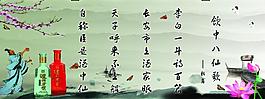 饮中八仙歌
李白一斗诗百篇
长安市上酒家眠
天子呼来不上船
自称臣是酒中仙